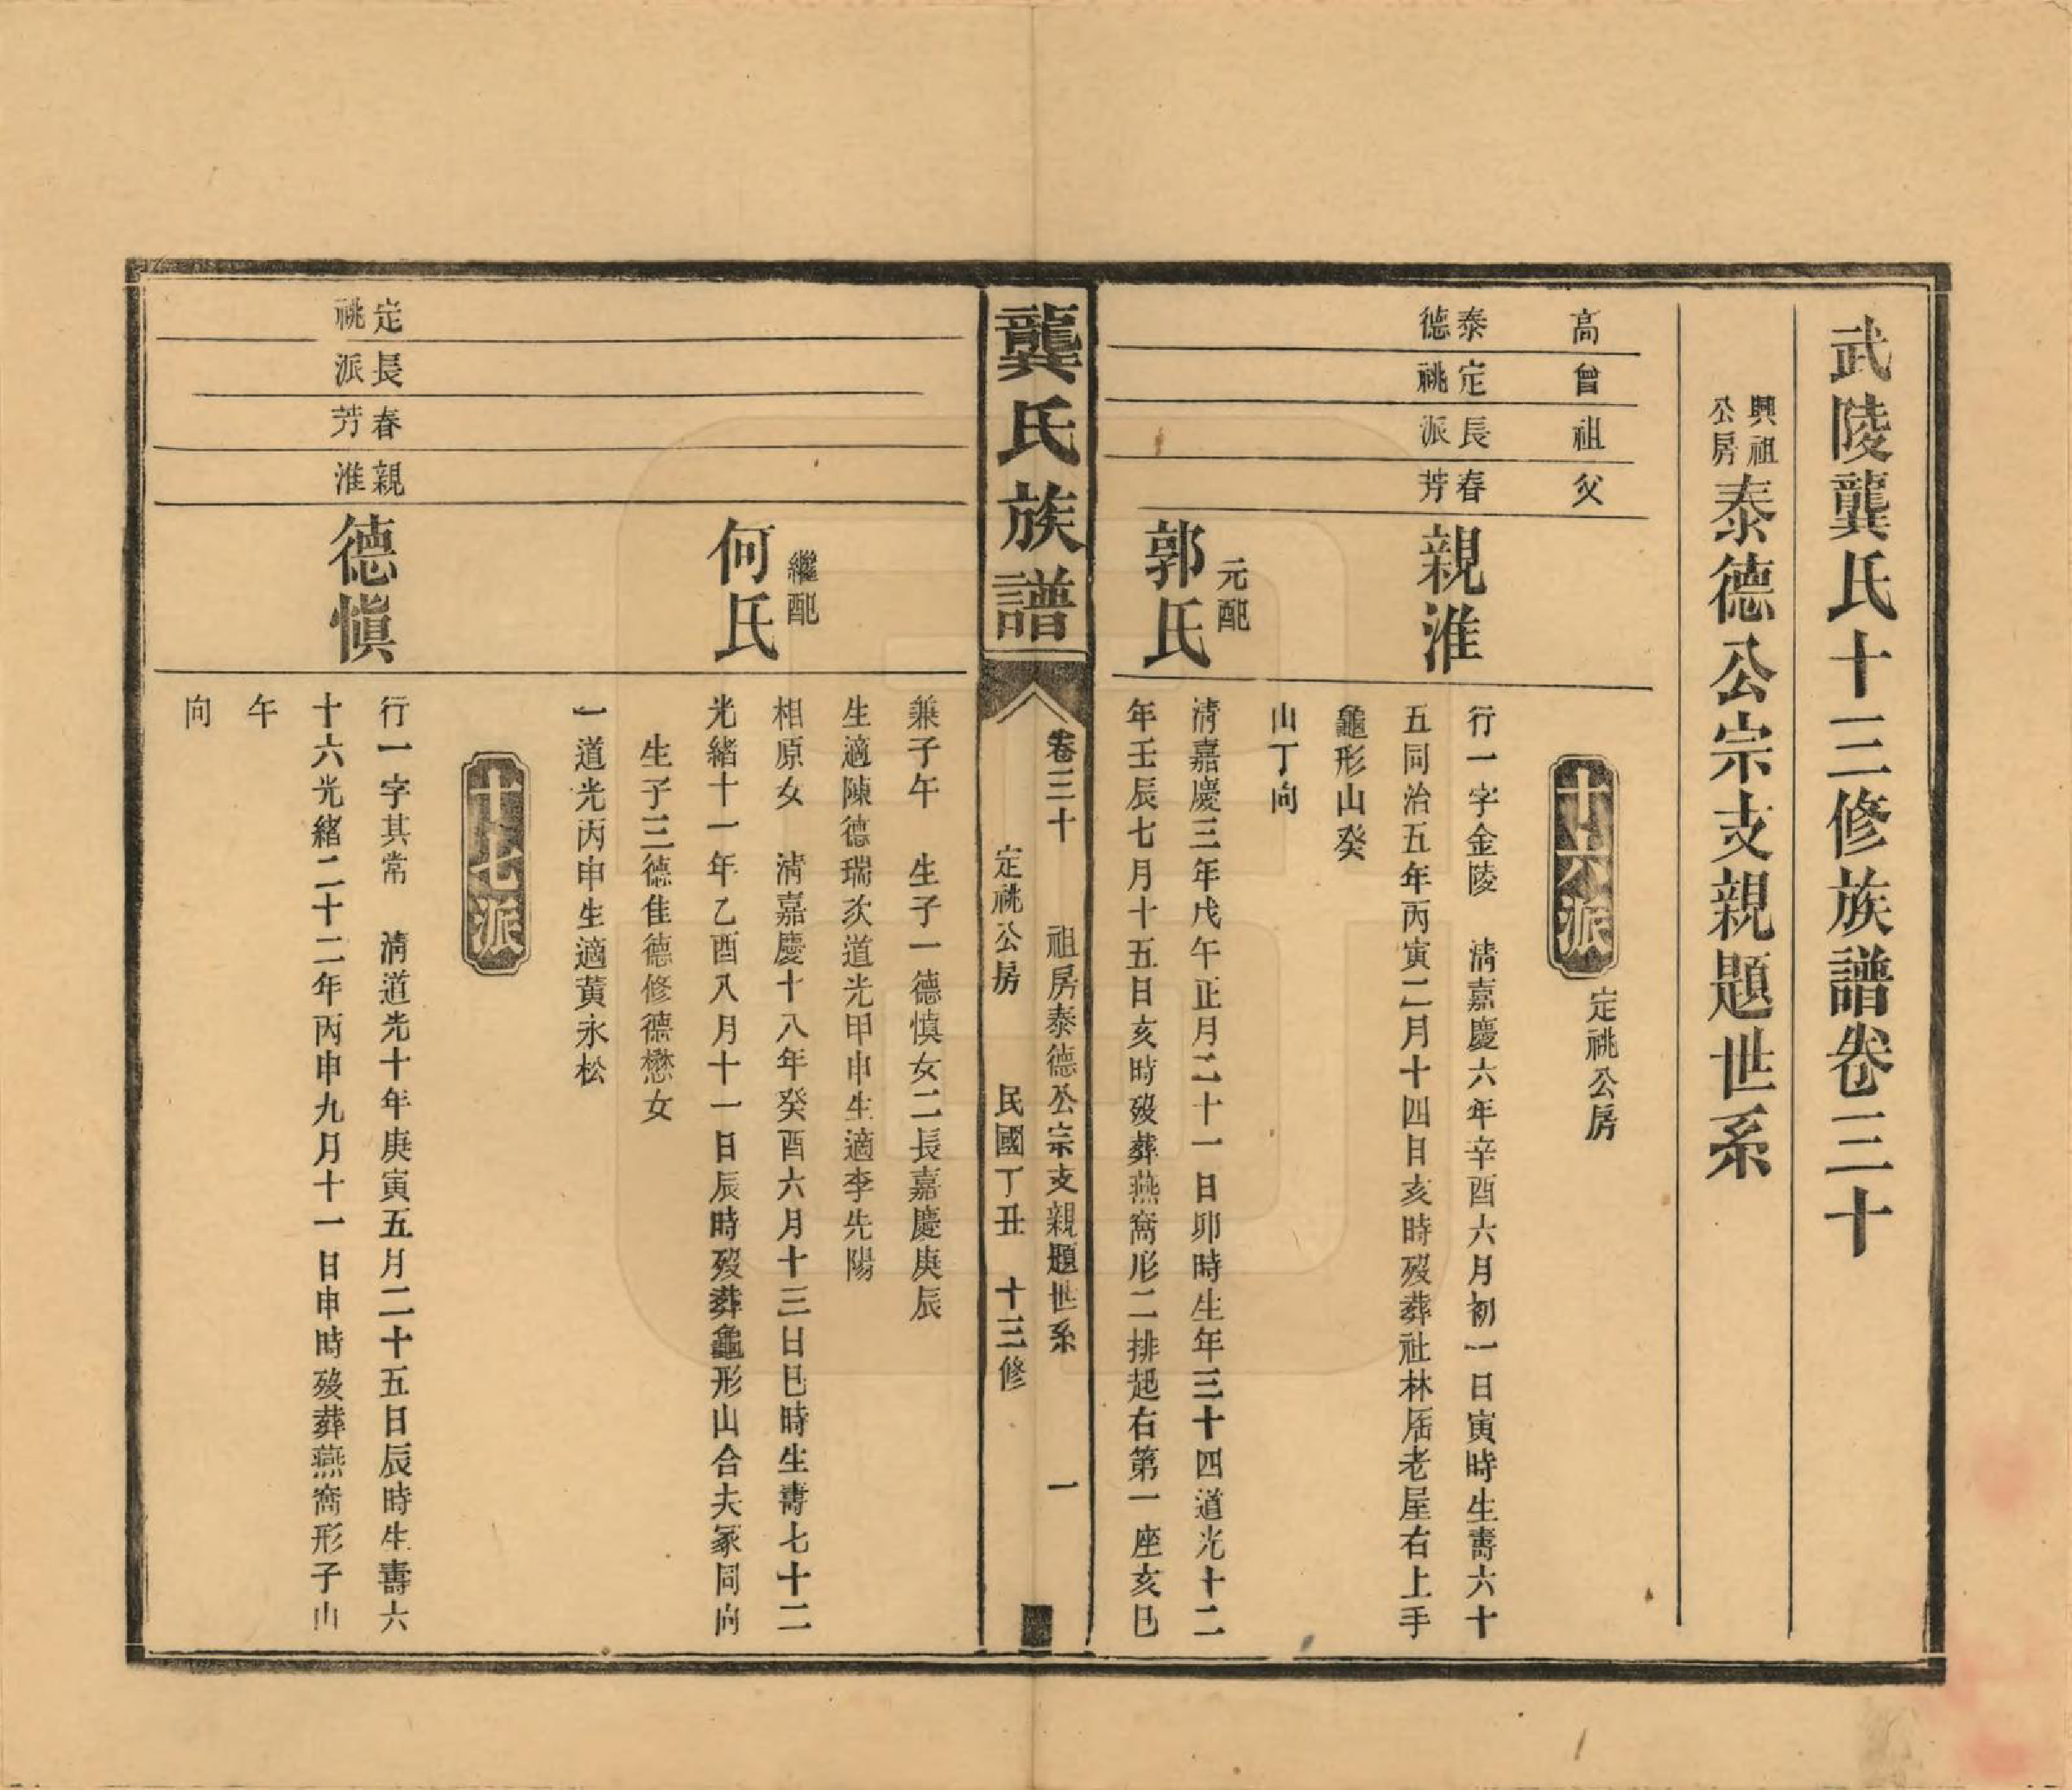 武陵龔氏十三修族譜卷三十
興祖公房泰德公宗支親題世系
高
曾
祖
父
十六派
定祧公房
泰德
定祧
長派
春芳
親淮
行一字金陵　清嘉慶六年辛酉六月初一日寅時生壽六十
五同治五年丙寅二月十四日亥時歿葬社林㞐老屋右上手
龜形山癸
山丁向
元配
郭氏
清嘉慶三年戊午正月二十一日卯時生年三十四道光十二
年壬辰七月十五日亥時歿葬燕窩形二排起右第一座亥巳
龔氏族譜
卷三十　祖房泰德公宗支親題世系　一
定祧公房　民國丁丑　十三修
兼子午　生子一德慎女二長嘉慶庚辰
生適陳德瑞次道光甲申生適李先陽
繼配
何氏
相原女　清嘉慶十八年癸酉六月十三日巳時生壽七十二
光緒十一年乙酉八月十一日辰時歿葬龜形山合夫冢同向
生子三德佳德修德懋女
一道光丙申生適黃永松
十七派
定祧
長派
春芳
親淮
德慎
行一字其常　清道光十年庚寅五月二十五日辰時生壽六
十六光緒二十二年丙申九月十一日申時歿葬燕窩形子山
午
向